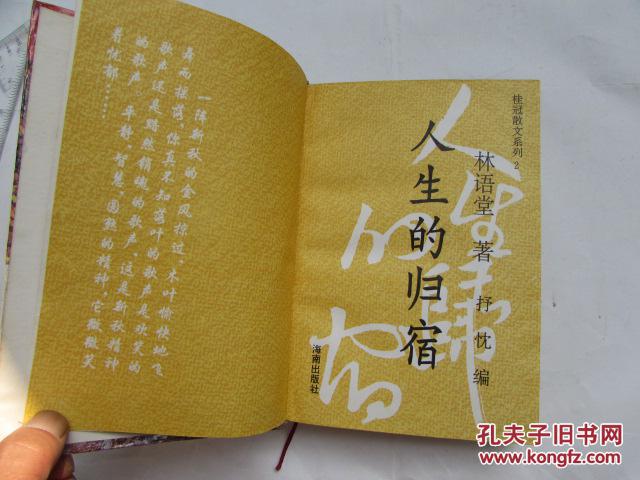 一阵新秋的金风掠过，木叶愉快地飞
舞而掠落，你真不知落叶的歌声是欢笑的
歌声还是黯然销魂的歌声。这是新秋精神
的歌声。平静，智慧，圆熟的精神，它微微笑
着忧郁……
桂冠散文系列 2
林语堂 著
抒忱 编
人生的归宿
人生的歸宿
海南出版社
孔夫子旧书网
www.kongfz.com